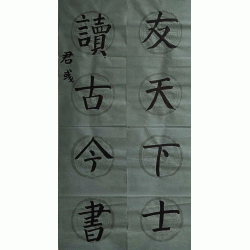 友天下士
讀古今書
君彧